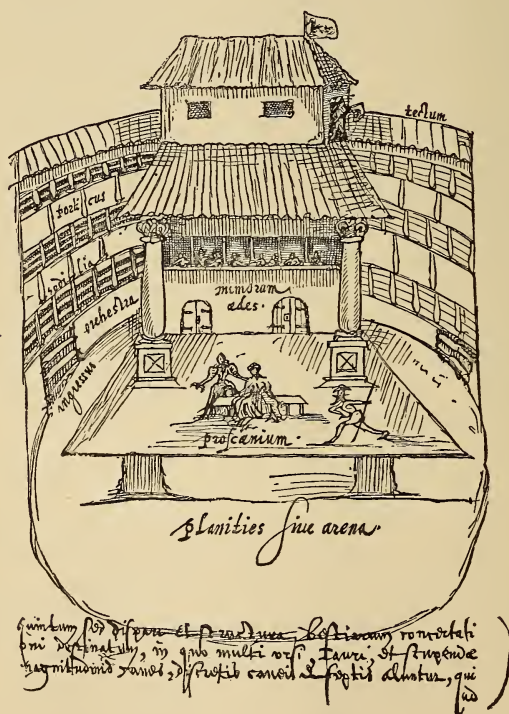 tectum
porticus
sedilia
orchestra
ingressus
mimorum
ædes.
proscænium.
planities sive arena.
quintum sed dispari et structura, bestiarum concertati
oni destinatum, in quo multi vrsi, Tauri, et stupendæ
magnitudinis canes, discretis caueis & septis aluntur, qui
ad